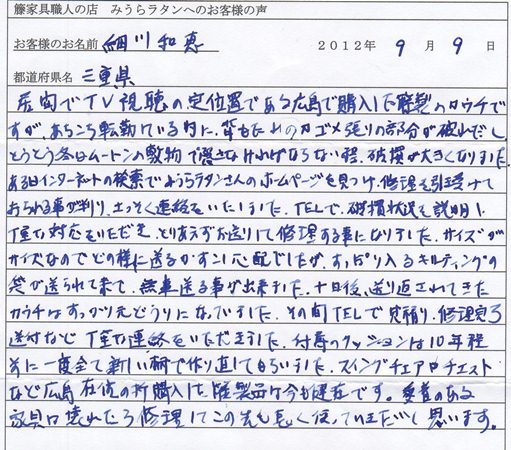 籐家具職人の店 みうらラタンへのお客様の声
お客様のお名前 細川和恵 2012年 9月 9日
都道府県名 三重県
居間でTV視聴の定位置である広島で購入した籐製のカウチで
すが、あちこち転勤している内に、背もたれのカゴメ張りの部分が破れだし
とうとう冬はムートンの敷物で隠さなければならない程、破損が大きくなりました
ある日インターネットの検索でみうらラタンさんのホームページを見つけ、修理も引き受けて
おられる事が判り、さっそく連絡をいたしました。TELで、破損状況を説明し
丁寧な対応をいただき、とりあえずお送りして修理する事になりました。サイズが
サイズなのでどの様に送るか少し心配でしたが、すっぽり入るキルティングの
袋が送られて来て、無事送る事が出来ました。十日後、送り返されてきた
カウチはすっかり元どうりになっていました。その間TELで見積り、修理完了
送付など丁寧な連絡をいただきました。付帯のクッションは10年程
前に一度全て新しい柄で作り直してもらいました。スイングチェアやチェスト
など広島在住の折購入した籐製品は今も健在です。愛着のある
家具は壊れたら修理してこの先も長く使っていきたいと思います。